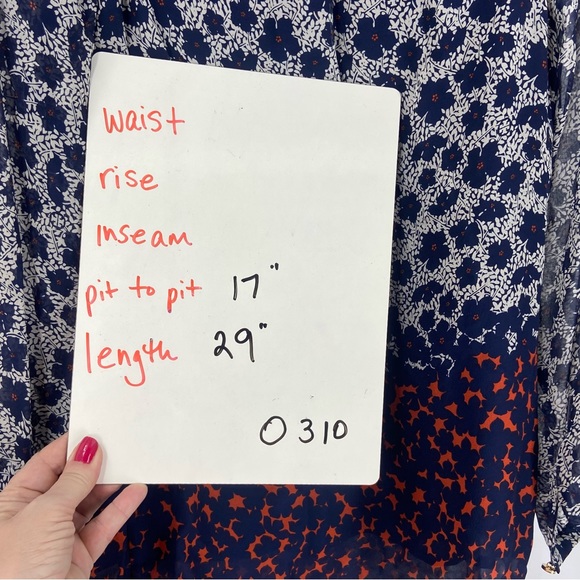 waist
rise
inseam
pit to pit 17"
length 29"
O 310